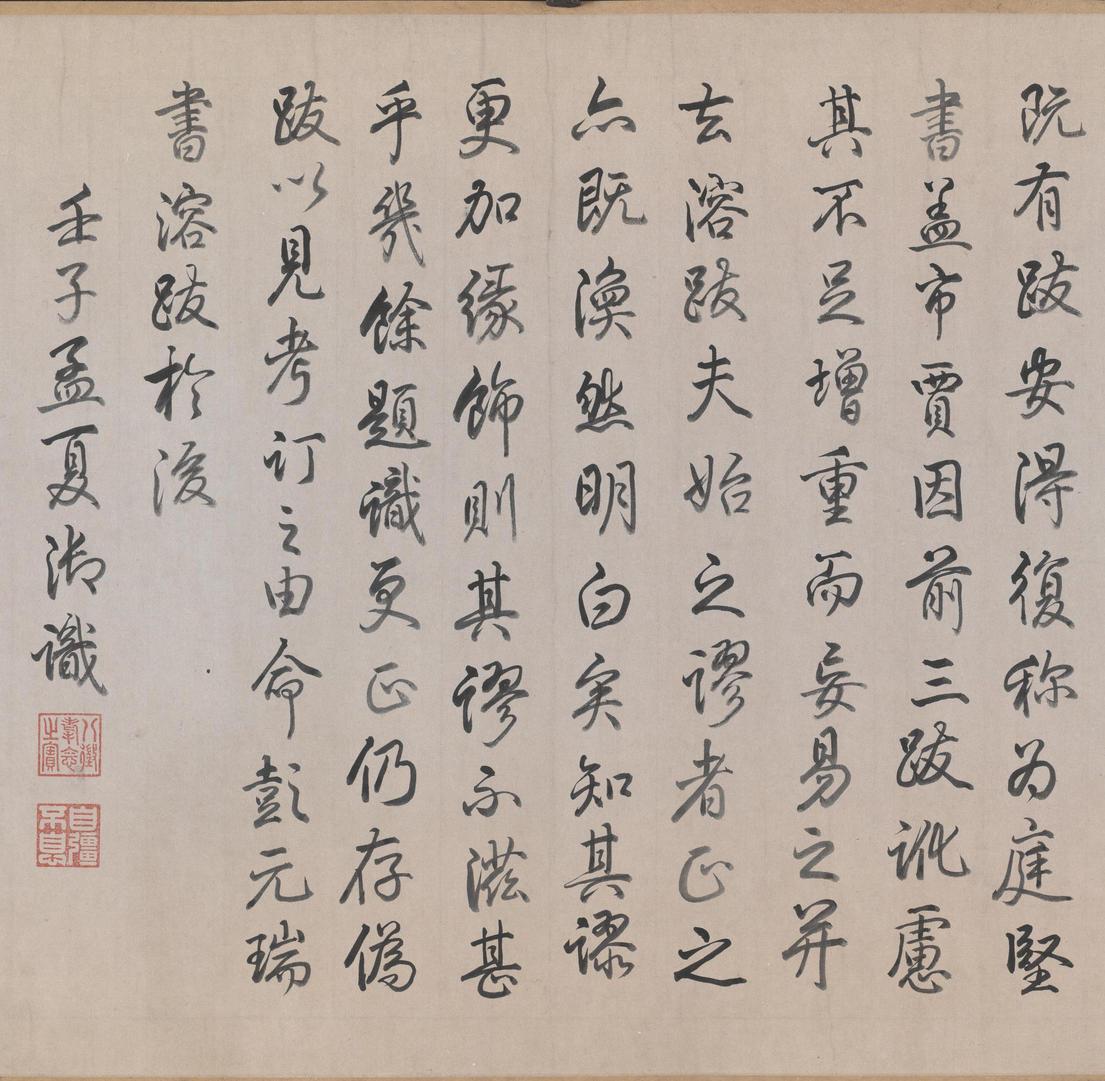 既有跋安得復称为庭堅
書盖市賈因前三跋訛慮
其不足增重而妄易之并
去溶跋夫始之謬者正之
亦既渙然明白矣知其謬
更加緣飾則其謬不滋甚
乎幾餘題識更正仍存偽
跋以見考訂之由命彭元瑞
書溶跋於後
壬子孟夏御識
八徵耄念之寳
自彊不息